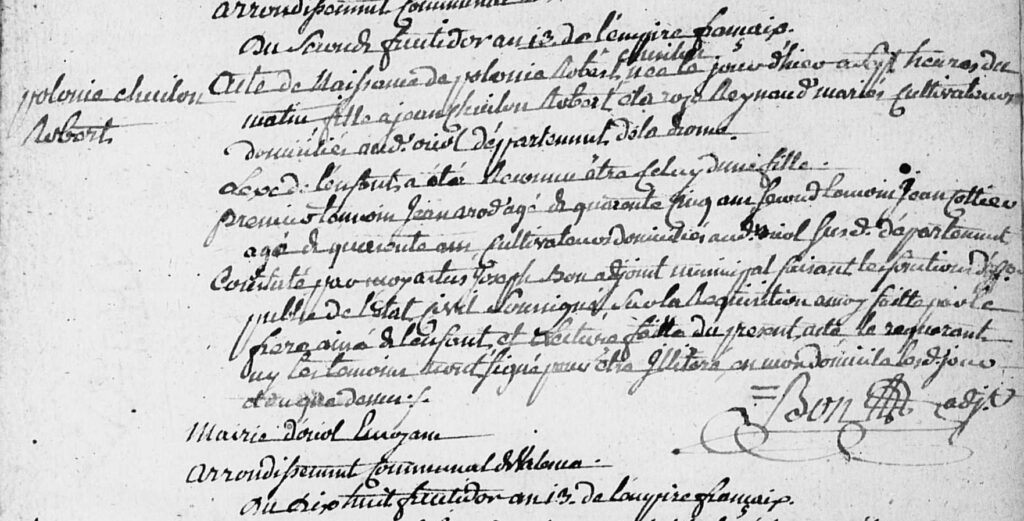 arrondissement Communal
Du Second fructidor an 13. de l'empire français.
polonie chuilon
Robert
Acte de Naissance de polonie Robert, chuilon née le jour d'hier a sept heures du
matin fille a jean chuilon Robert et a roze Reynaud mariés Cultivateurs
domiciliés aud. oriol département de la drome.
Sexe de l'enfant, a été Reconnu être Celuy d'une fille.
premier temoin Jean arod agé de quarente Cinq ans Second temoin Jean
agé de quarente ans, Cultivateurs domiciliés aud. oriol susd. département
Constaté par moy antus Joseph Bon adjoint municipal faisant les fonctions d'off.
public de l'Etat Civil Soussigné, Sur la Requisition a moy faitte par le
frere ainé de l'enfant, et Lecture faitte du present acte le requerant
ny les temoins n'ont signé pour être Illiteré, en mon domicile lesd. jour
et an que dessus.
Bon adj.t
Mairie d'oriol En royans
arrondissement Communal de Valence.
Du dix huit fructidor an 13. de l'empire français.